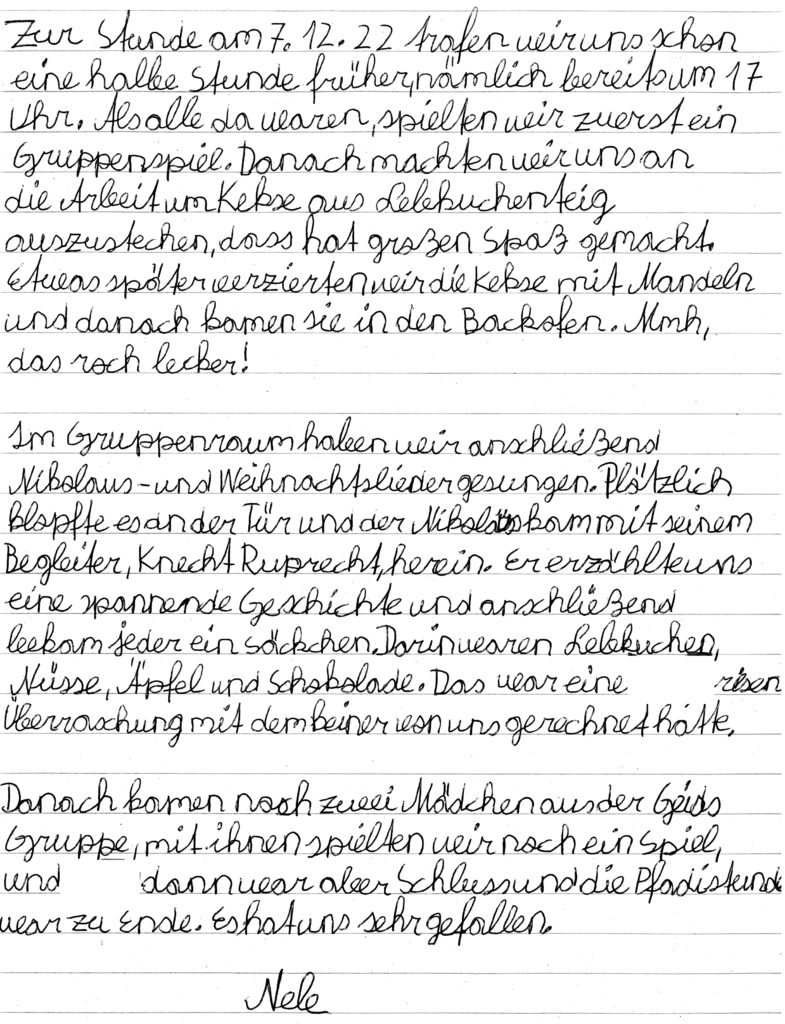 Zur Stunde am 7. 12. 22 trafen wir uns schon
eine halbe Stunde früher, nämlich bereits um 17
Uhr. Als alle da waren, spielten wir zuerst ein
Gruppenspiel. Danach machten wir uns an
die Arbeit um Kekse aus Lebkuchenteig
auszustechen, dass hat großen Spaß gemacht.
Etwas später verzierten wir die Kekse mit Mandeln
und danach kamen sie in den Backofen. Mmh,
das roch lecker!
Im Gruppenraum haben wir anschließend
Nikolaus- und Weihnachtslieder gesungen. Plötzlich
klopfte es an der Tür und der Nikolaus kam mit seinem
Begleiter, Knecht Ruprecht, herein. Er erzählte uns
eine spannende Geschichte und anschließend
bekam jeder ein Säckchen. Darin waren Lebkuchen,
Nüsse, Äpfel und Schokolade. Das war eine risen
Überraschung mit dem keiner von uns gerechnet hätte.
Danach kamen noch zwei Mädchen aus der Geids
Gruppe, mit ihnen spielten wir noch ein Spiel,
und dann war aber Schluss und die Pfadistunde
war zu Ende. Es hat uns sehr gefallen.
Nele